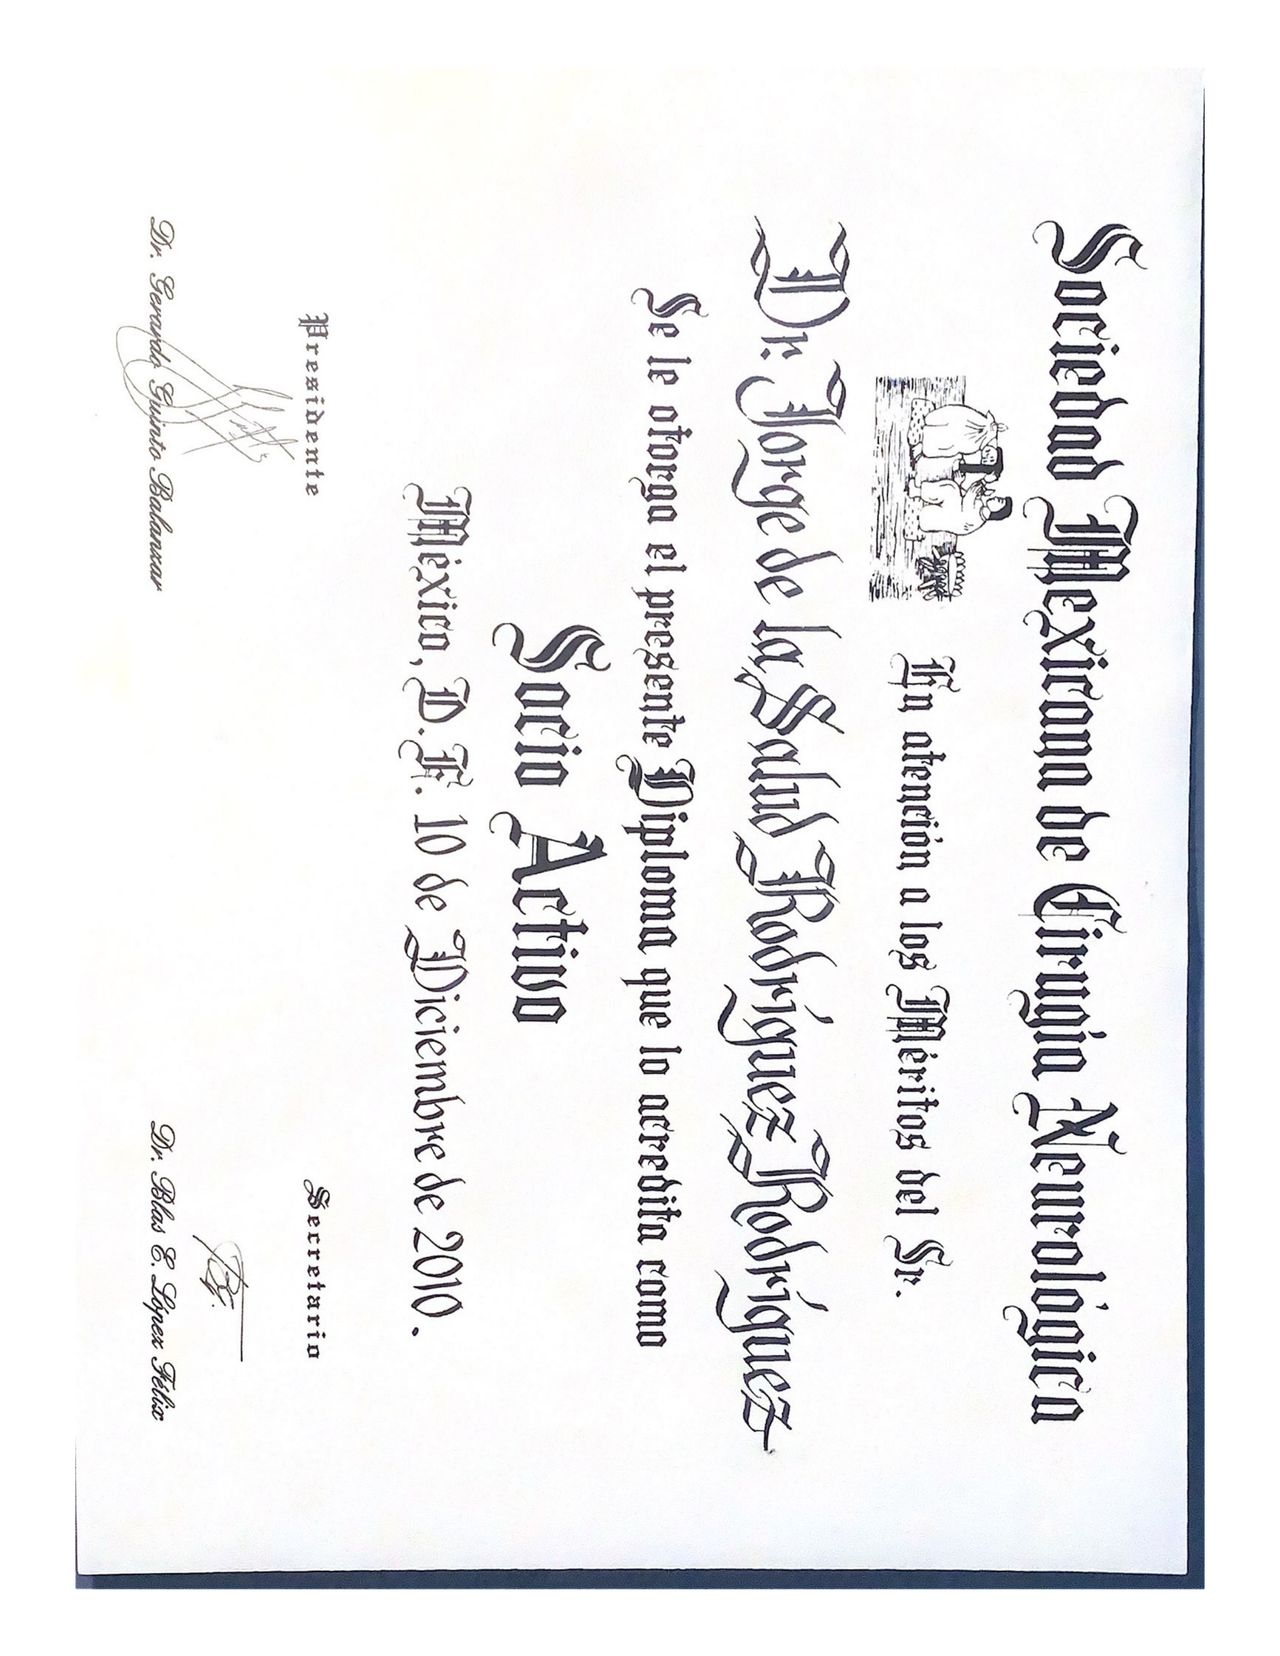 Sociedad Mexicana de Cirugía Neurológica
En atención a los Méritos del Sr.
Dr. Jorge de la Salud Rodríguez Rodríguez
Se le otorga el presente Diploma que lo acredita como
Socio Activo
México, D. F. 10 de Diciembre de 2010.
Presidente
Secretario
Dr. Gerardo Guinto Balanzar
Dr. Blas E. López Félix